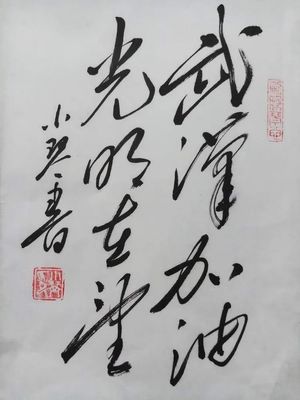 武漢加油
光明在望
小琴書